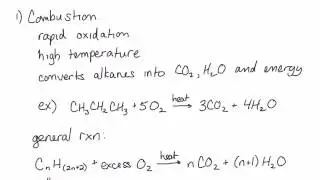 1) Combustion
rapid oxidation
high temperature
converts alkanes into CO₂, H₂O and energy
ex) CH₃CH₂CH₃ + 5O₂ heat→ 3CO₂ + 4H₂O
general rxn:
CₙH₍₂ₙ₊₂₎ + excess O₂ heat→ nCO₂ + (n+1)H₂O